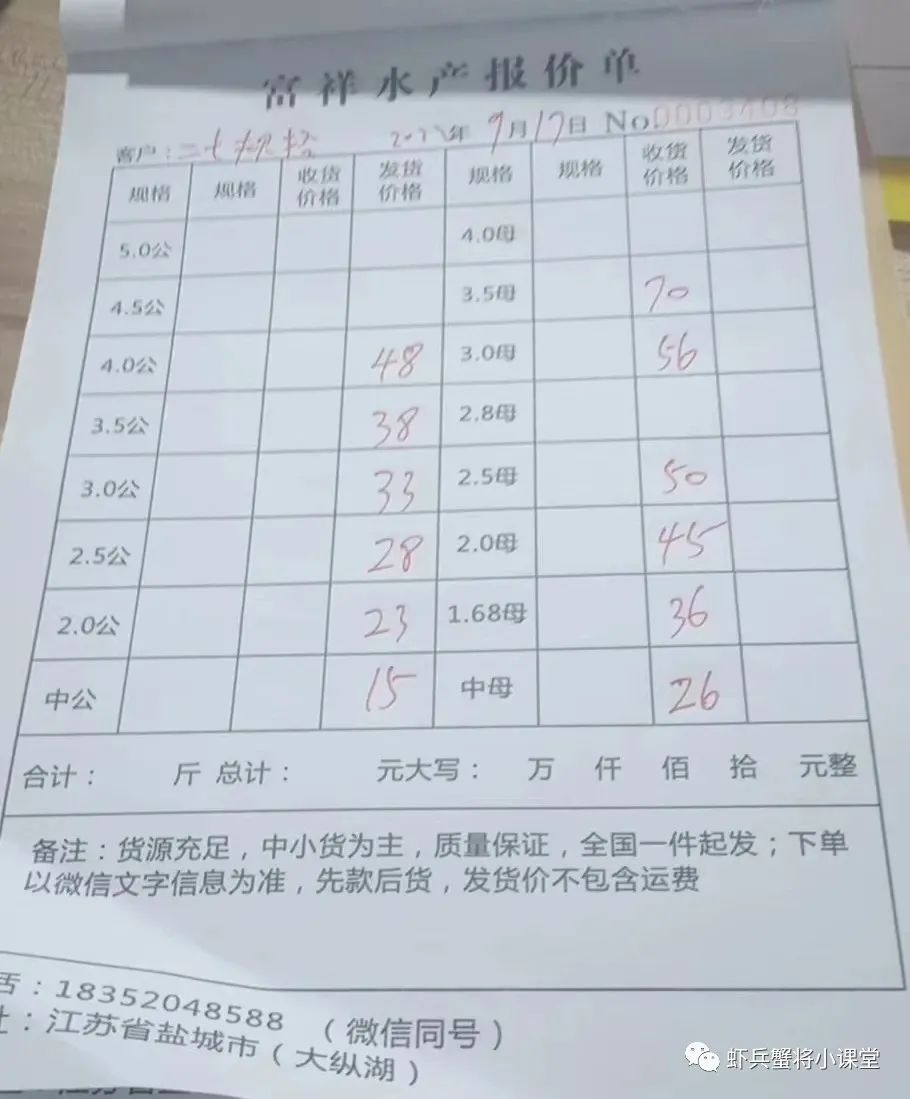 富祥水产报价单
客户: 年 9月17日 No.0003408
规格 规格 收货价格 发货价格 规格 规格 收货价格 发货价格
5.0公 4.0母
4.5公 3.5母 70
4.0公 48 3.0母 56
3.5公 38 2.8母
3.0公 33 2.5母 50
2.5公 28 2.0母 45
2.0公 23 1.68母 36
中公 15 中母 26
合计: 斤 总计: 元大写: 万 仟 佰 拾 元整
备注:货源充足,中小货为主,质量保证,全国一件起发;下单
以微信文字信息为准,先款后货,发货价不包含运费
:18352048588 (微信同号)
:江苏省盐城市(大纵湖)
虾兵蟹将小课堂